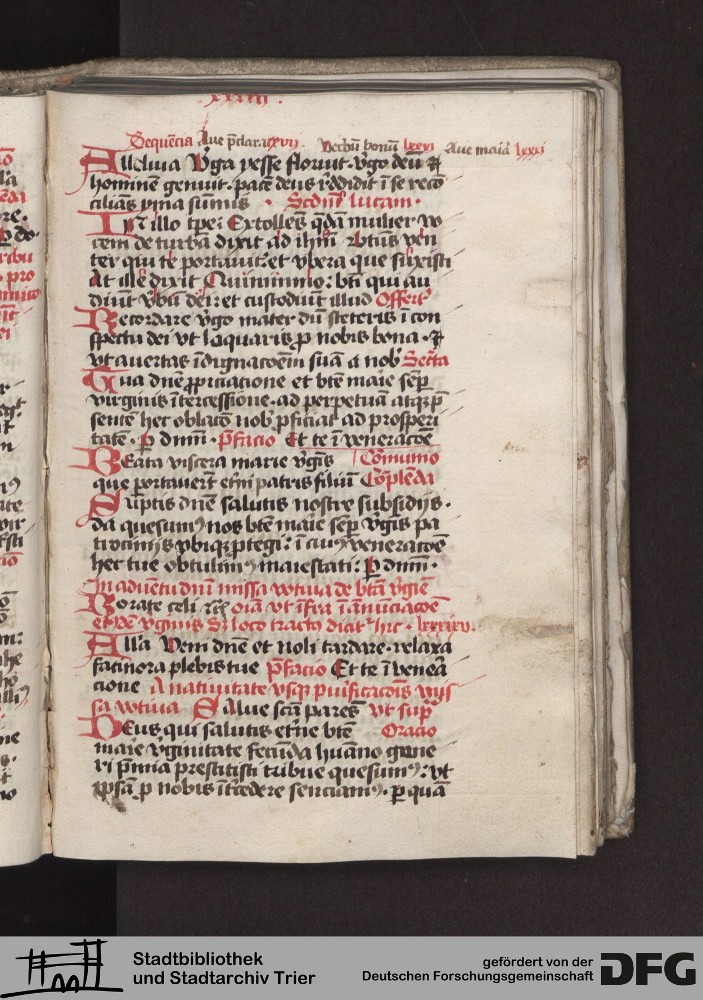 xxiiii.
Sequēcia Aue p̄clara xvij. Verbū bonū lxxvi Aue maīa lxxxj
Alleluia Vga yesse floruit. vgo deū ⁊
hominē genuit. pacē deus r̄ddidit ī se reco
cilians yma sūmis . Scdm̄ lucam.
In illo tp̄e: Extollēs q̄dā mulier vo
cem de turba dixit ad ihm̄ Btūs ven
ter qui te portauit: et vbera que suxisti
At ille dixit Quīmīmo: bt̄i qui au
diūt v̄bū dei: et custodiūt illud Offert'
Recordare v̄go mater dū steteris ī con
spectu dei vt loquaris ꝓ nobis bona. ⁊
vt auertas īdignacōem suā a nob' Sec̄ta
Tua dn̄e ꝓpiciatione et bt̄e maīe sēp
virginis ītercessione. ad perpetuā atqꝫ p̄
sentē hec oblacō nob' ꝓficiat ad prosperi
tatē. ꝑ dnm̄. P̄facio Et te ī veneracōe
Beata viscera marie v̄gīs Cōmunio
que portauerūt et̄ni patris filiū Cōplēda
Sūptis dn̄e salutis nostre subsidijs.
da quesum⁹ nos bt̄e maīe sēp v̄gīs pa
trocinijs vbiqꝫ ꝓtegi: ī cui⁹ veneracōe
hec tue obtulim⁹ maiestati: ꝑ dnm̄.
In aduētu dnī missa votiua de bt̄a v̄gīe
Rorate celi oīa vt īfra ī ānūciacōe
eiusdē v̄ginis Sꝫ loco tractꝰ dicit~ hic. lxxxixv.
All'a Veni dn̄e et noli tardare. relaxa
facinora plebis tue P̄facio Et te ī venera
cione A natiuitate vsqꝫ p̄uificacōis mīs
sa votiua Salue scā parēs vt sup̄
Deus qui salutis et̄ne bt̄e Oracio
maīe v̄ginitate fecūda hūano gene
ri p̄mia prestitisti tribue quesum⁹: vt
ip̄sā ꝓ nobis īt̄cedere senciam⁹. ꝑ quā
Stadtbibliothek
und Stadtarchiv Trier
gefördert von der
Deutschen Forschungsgemeinschaft
DFG